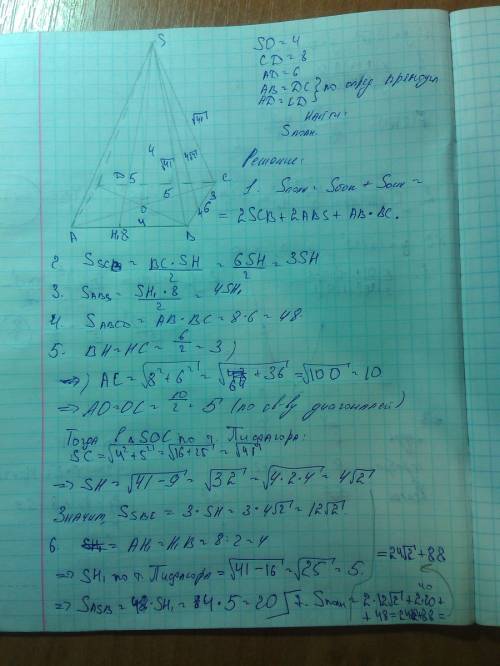 S
SO = 4
CD = 8
AD = 6
AB = DC } по опред. прямоуг.
Найти:
Sполн.
Решение:
√41
4
√41
4√2
D
5
C
5
3
O
6
4
A
H₁
8
B
1. Sполн = Sбок + Sосн =
= 2SCB + 2ABS + AB · BC.
2. SSCB = BC · SH / 2 = 6SH / 2 = 3SH
3. SABS = SH₁ · 8 / 2 = 4SH₁
4. SABCD = AB · BC = 8 · 6 = 48.
5. BH = HC = 6/2 = 3
⇒ AC = √8² + 6² = √64 + 36 = √100 = 10
⇒ AO = OC = 10/2 = 5 (по св-ву диагоналей)
Тогда в ΔSOC по т. Пифагора:
SC = √4² + 5² = √16 + 25 = √41
⇒ SH = √41 - 9 = √32 = √4 · 2 · 4 = 4√2
Значит, SSBC = 3 · SH = 3 · 4√2 = 12√2
6. = AH₁ = H₁B = 8 : 2 = 4
⇒ SH₁ по т. Пифагора = √41 - 16 = √25 = 5.
⇒ SASB = 4 · SH₁ = 4 · 5 = 20
7. Sполн = 2 · 12√2 + 2 · 20 +
40
+ 48 = 24√2 + 88 =
= 24√2 + 88